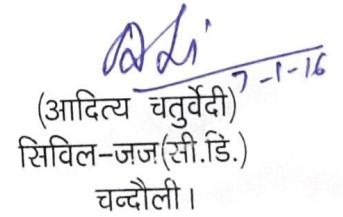 7-1-16
(आदित्य चतुर्वेदी)
सिविल-जज(सी.डि.)
चन्दौली।